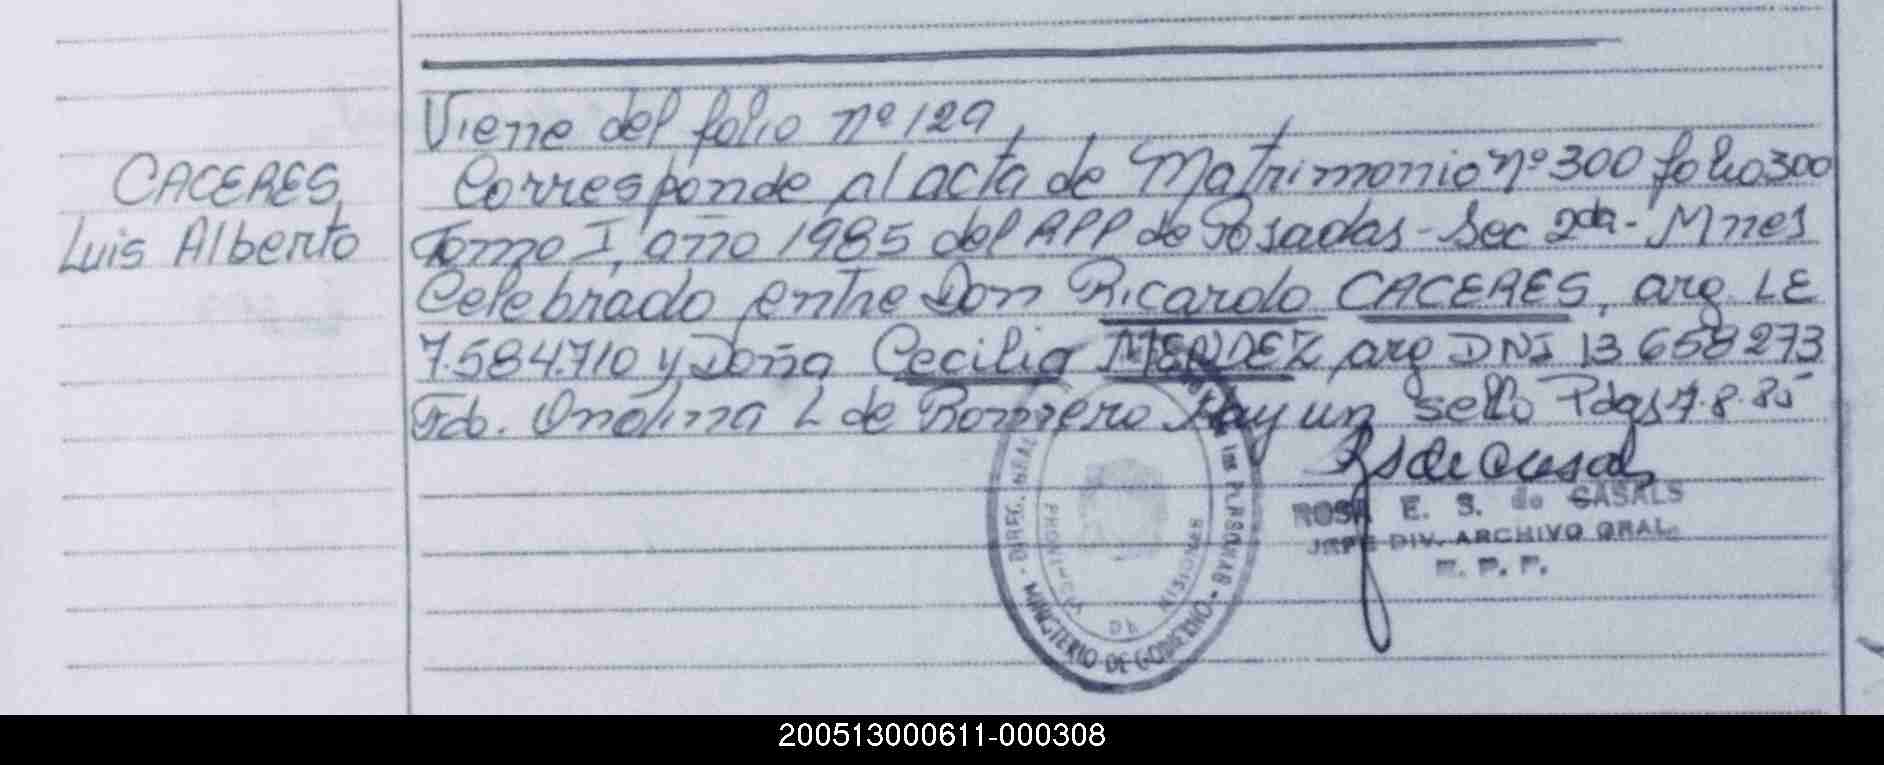 Viene del folio nº 129,
CACERES, Luis Alberto
Corresponde al acta de Matrimonio nº 300 folio 300
Tomo I, año 1985 del RPP de Posadas - Sec 2da - Mnes
Celebrado entre Don Ricardo CACERES, arg. LE
7.584.710 y Doña Cecilia MENDEZ, arg DNI 13 658 273
Fdo. L de Romero Hay un sello Pdas 7.8.85
ROSA E. S. de CASALS
JEFE DIV. ARCHIVO GRAL.
R. P. P.
DIREC. GRAL
PERSONAS
MINISTERIO DE GOBIERNO
PROVINCIA DE MISIONES
200513000611-000308